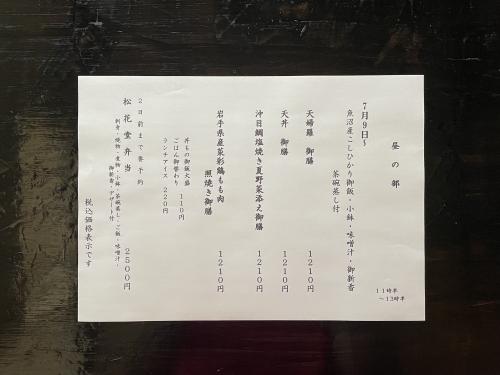 昼の部
11時半
～13時半
7月9日～
魚沼産こしひかり御飯・小鉢・味噌汁・御新香
茶碗蒸し付
天婦羅 御膳 1210円
天丼 御膳 1210円
沖目鯛塩焼き夏野菜添え御膳 1210円
岩手県産菜彩鶏もも肉
照焼き御膳 1210円
丼もの御飯大盛
ごはん御替わり 110円
ランチアイス 220円
2日前まで要予約
松花堂弁当 2500円
刺身・焼物・煮物・小鉢・茶碗蒸し・ご飯・味噌汁・
御新香・デザート付
税込価格表示です